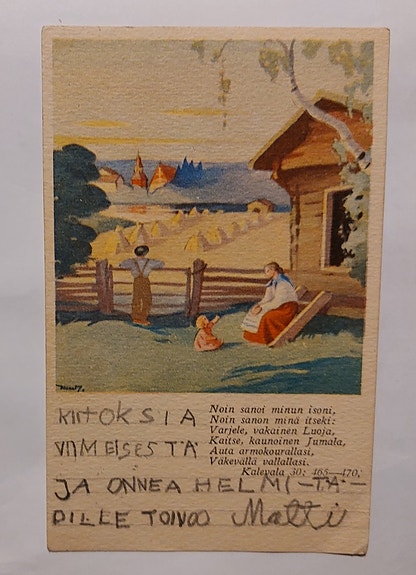 KIITOKSIA
VIIMEISESTÄ
Noin sanoi minun isoni,
Noin sanon minä itseki:
Varjele, vakainen Luoja,
Kaitse, kaunoinen Jumala,
Auta armokourallasi,
Väkevällä vallallasi.
Kalevala 30: 465—470;
JA ONNEA HELMI-TÄ-
DILLE TOIVOO Matti